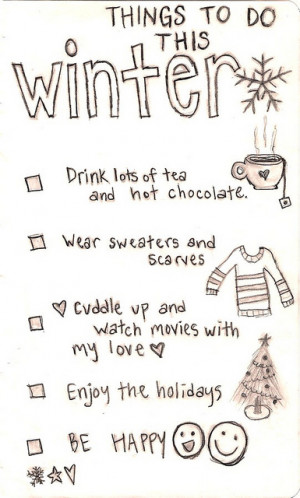 THINGS TO DO
THIS
winter
Drink lots of tea
and hot chocolate.
Wear sweaters and
scarves
♥ Cuddle up and
watch movies with
my love ♥
Enjoy the holidays
BE HAPPY